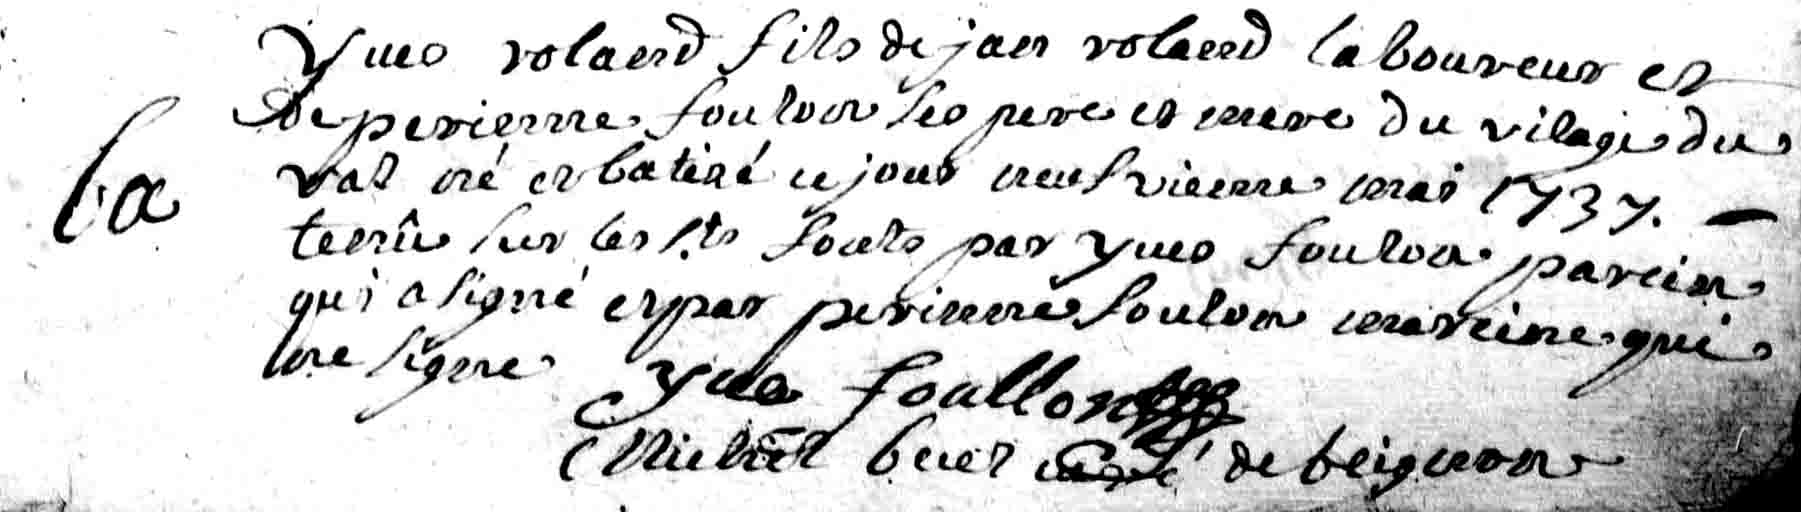 yues volaend fils de jan volaend laboureur et
de perienne foulon ses pere et mere du vilage du
ba
val né et batisé ce jour neufvieme mai 1737. —
tenû sur les s.ts fonts par yues foulon parein
qui a signé et par perienne foulon mareine qui
ne signe
yues foullon
Michel buet curé de beignon